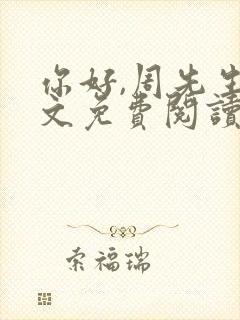 你好,周先生
文免費閱讀
索福瑞